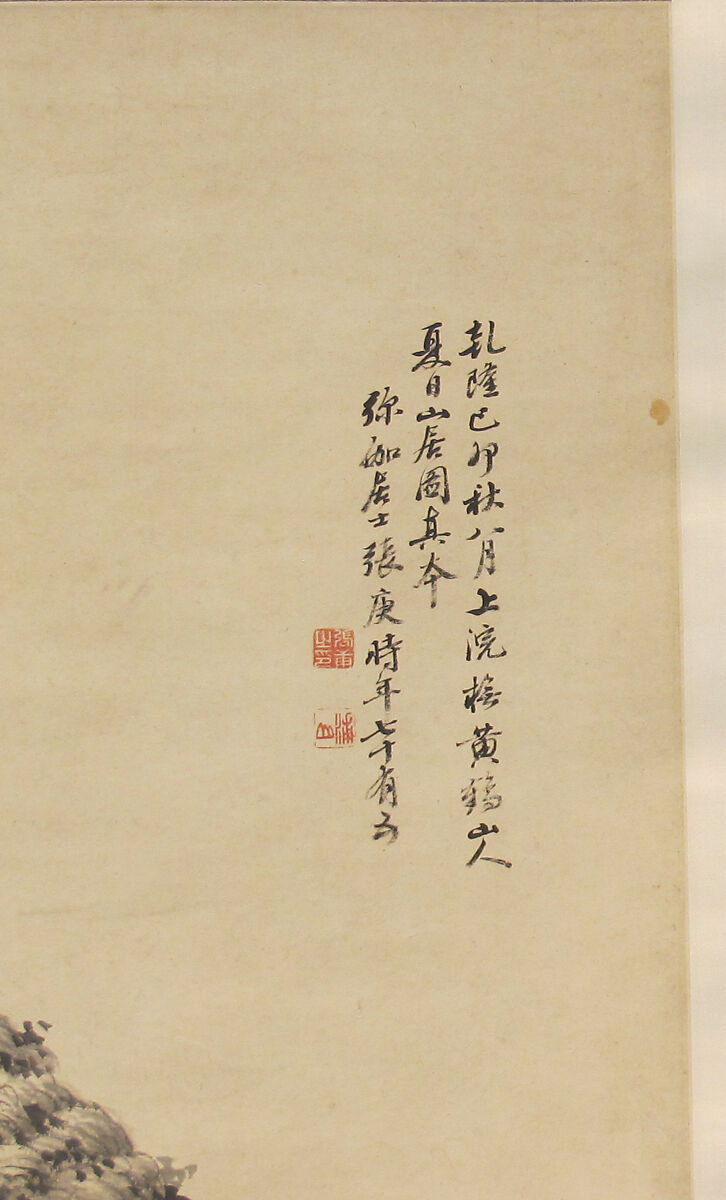 乾隆己卯秋八月上浣橅黄鶴山人
夏日山居圖真本
弥伽居士張庚時年七十有五
張庚之印
浦山